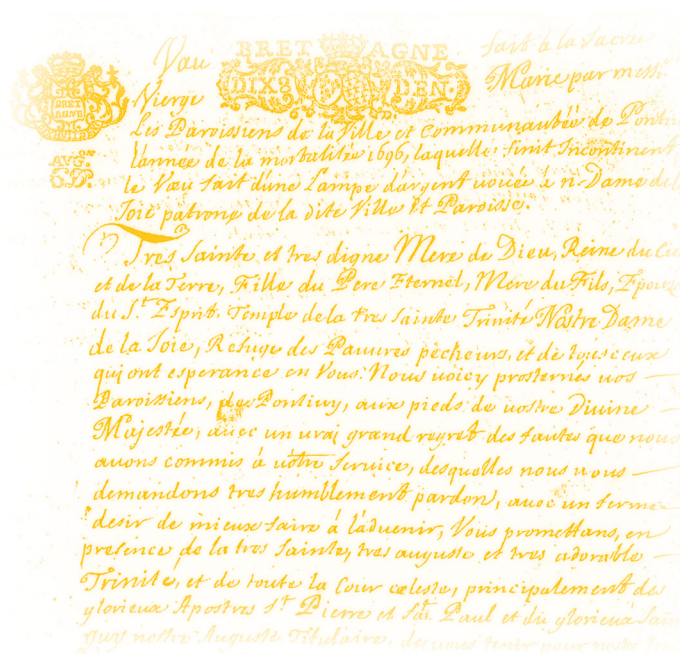 BRETAGNE
DIX DEN.
BRET
AGNE
AVG
Vœu fait à la Sacrée
Vierge Marie par messi
Les Paroissiens de la Ville et Communautée de Ponti
l'année de la mortalitée 1696, laquelle finit Incontinent
le Vœu fait d'une Lampe d'argent vouée à n. Dame de
Joie patrone de la dite Ville et Paroisse.
Tres Sainte et tres digne Mere de Dieu, Reine du Cie
et de la Terre, Fille du Pere Eternel, Mere du Fils, Epouze
du St. Esprit. Temple de la tres sainte Trinité Nostre Dame
de la Joie, Refuge des Pauures pecheurs, et de tous ceux
qui ont esperance en Vous. Nous voicy prosternés vos
Paroissiens, de Pontivy, aux pieds de vostre Divine
Majestée, auec un vrai grand regret des fautes que nous
auons commis à vôtre Service, desquelles nous vous
demandons tres humblement pardon, auec un ferme
desir de mieux faire à l'aduenir, Vous promettans, en
presence de la tres Sainte, tres auguste et tres adorable
Trinité, et de toute la Cour celeste, principalement des
glorieux Apostres St. Pierre et St. Paul et du glorieux Sain
guy nostre Auguste Titulaire, de vous tenir pour nostre